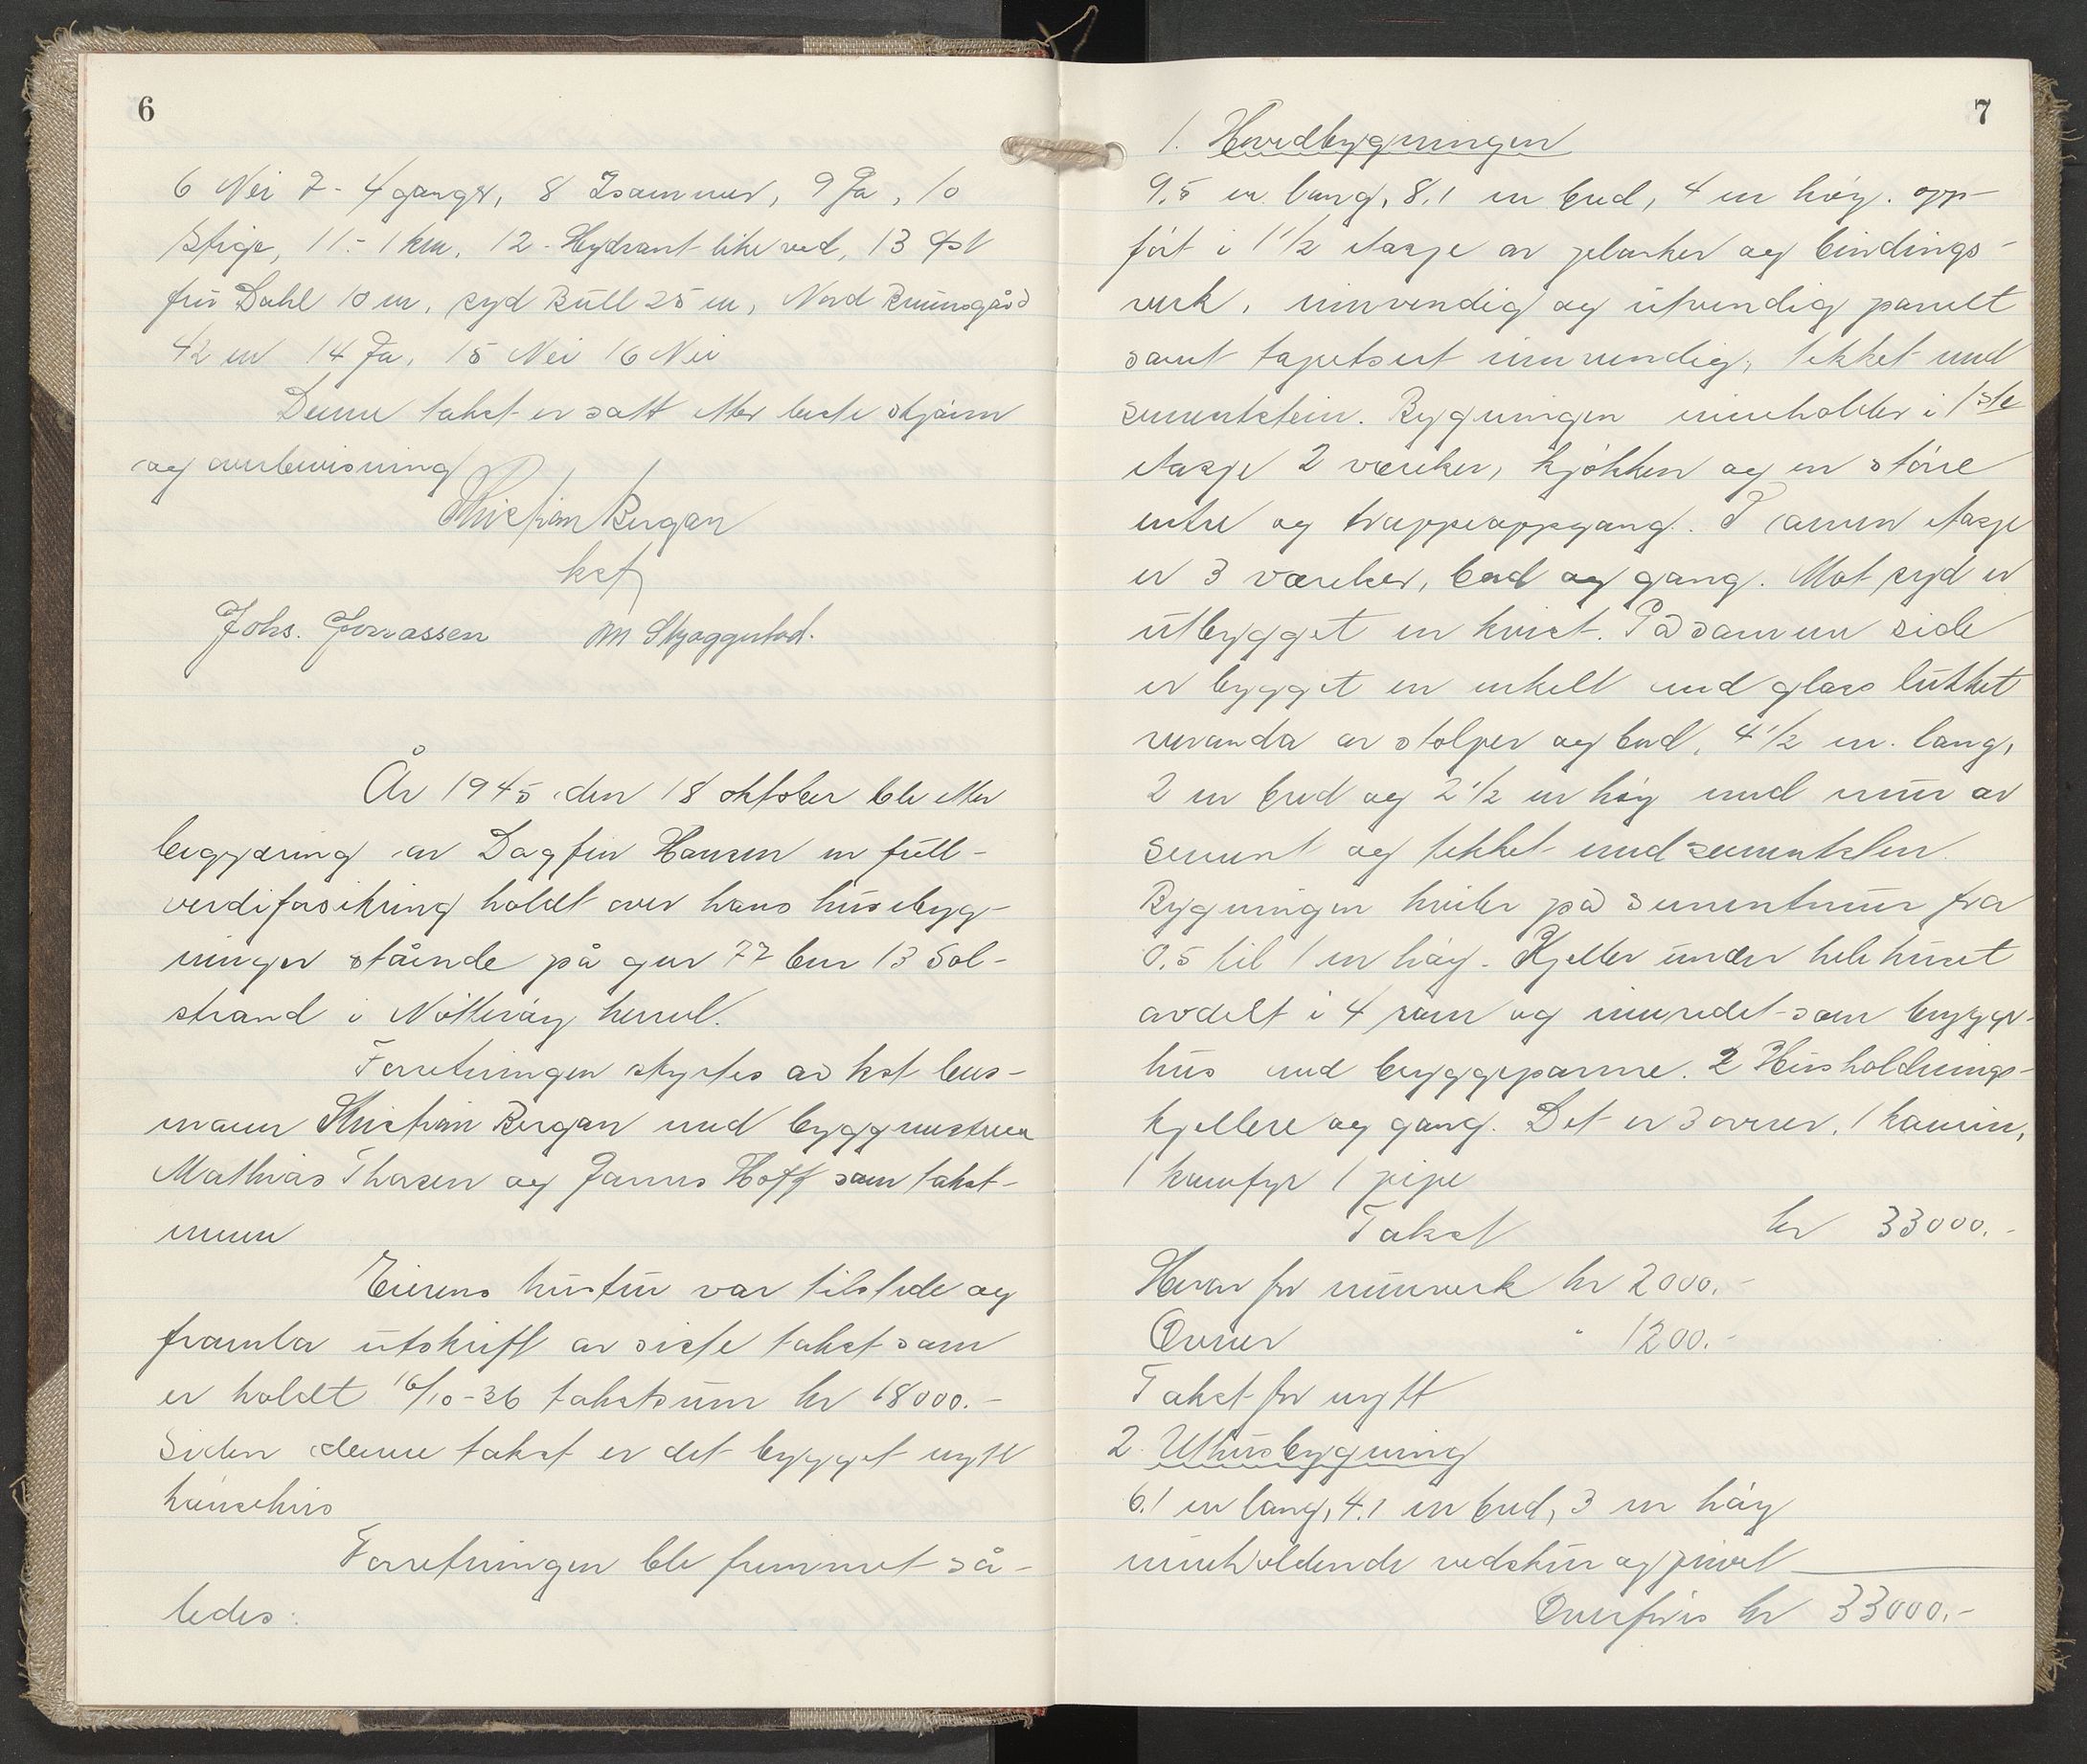 6
6 Nei 7 - 4 ganger, 8 Isammen, 9 Ja, 10
Stige, 11 - 1 km, 12 - Hydrant like ved, 13 Øst
fru Dahl 10 m, syd Bull 25 m, Nord Bruunsgård
42 m 14 Ja, 15 Nei 16 Nei
Denne takst er satt etter beste skjønn
og overbevisning
Kristian Bergan
kst
Johs. Jonassen M Skjaggestad.
År 1945 den 18 oktober ble etter
begjæring av Dagfin Hansen en full-
verdiforsikring holdt over hans husebyg-
ninger stående på gnr 77 bnr 13 Sol-
strand i Nøtterøy herred.
Forretningen styrtes av kst lens-
mann Kristian Bergan med byggmestrene
Mathias Thorsen og Hoff som takst-
menn
Eierens hustru var tilstede og
framla utskrift av siste takst som
er holdt 16/10-36 takstsum kr 18000.-
Siden denne takst er det bygget nytt
hønsehus
Forretningen ble fremmet så-
ledes:
7
1. Hovedbygningen
9,5 m lang, 8,1 m bred, 4 m høy. opp-
ført i 1 1/2 etasje av planker og bindings-
verk, innvendig og utvendig panelt
samt tapetsert innvendig, tekket med
sementstein. Bygningen inneholder i 1ste
etasje 2 værelser, kjøkken og en større
entre og trappeoppgang. I annen etasje
er 3 værelser, bad og gang. Mot syd er
utbygget en kvist. På samme side
er bygget en enkelt med glass lukket
veranda av stolper og bord, 4 1/2 m. lang,
2 m bred og 2 1/2 m høy med mur av
sement og tekket med sementsten.
Bygningen hviler på sementmur fra
0,5 til 1 m høy. Kjeller under hele huset
avdelt i 4 rom og innredet som brygge-
hus med bryggepanne. 2 Husholdnings-
kjellere og gang. Det er 3 ovner, 1 kamin,
1 komfyr 1 pipe
Takst kr 33000.-
Herav for murverk kr 2000.-
Ovner " 1200.-
Takst for nytt
2. Uthusbygning
6.1 m lang, 4.1 m bred, 3 m høy
inneholdende vedskur og privet
Overføres kr 33000.-